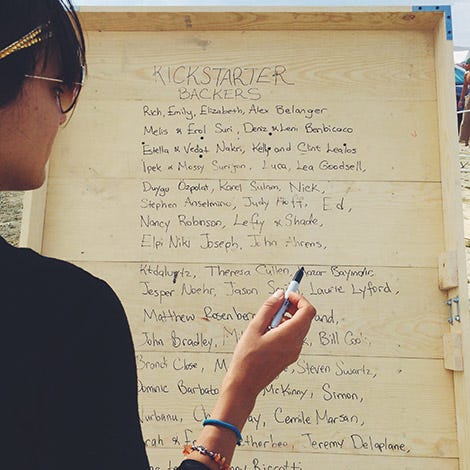 KICKSTARTER
BACKERS
Rich, Emily, Elizabeth, Alex Belanger
Melis & Erol Suri, Deniz & Leni Benbicaco
Estella & Vedat Nakri, Kelly and Clint Lealos
Ipek & Mossy Sueryon, Luca, Lea Goodsell,
Duygu Ozpolat, Karel Sulam, Nick,
Stephen Anselmino, Judy Hoff, Ed,
Nancy Robinson, Lefty & Shade,
Elpi Niki Joseph, John Ahrens,
Theresa Cullen, Baymohr,
Jesper Noehr, Jason Laurie Lyford,
Matthew Rosenber and,
John Bradley, Bill Col
Brandi Close, Steven Swartz,
Dominic Barbato McKinny, Simon,
Nurbanu, ay, Cemile Marsan,
arah & Jeremy Delaplane,